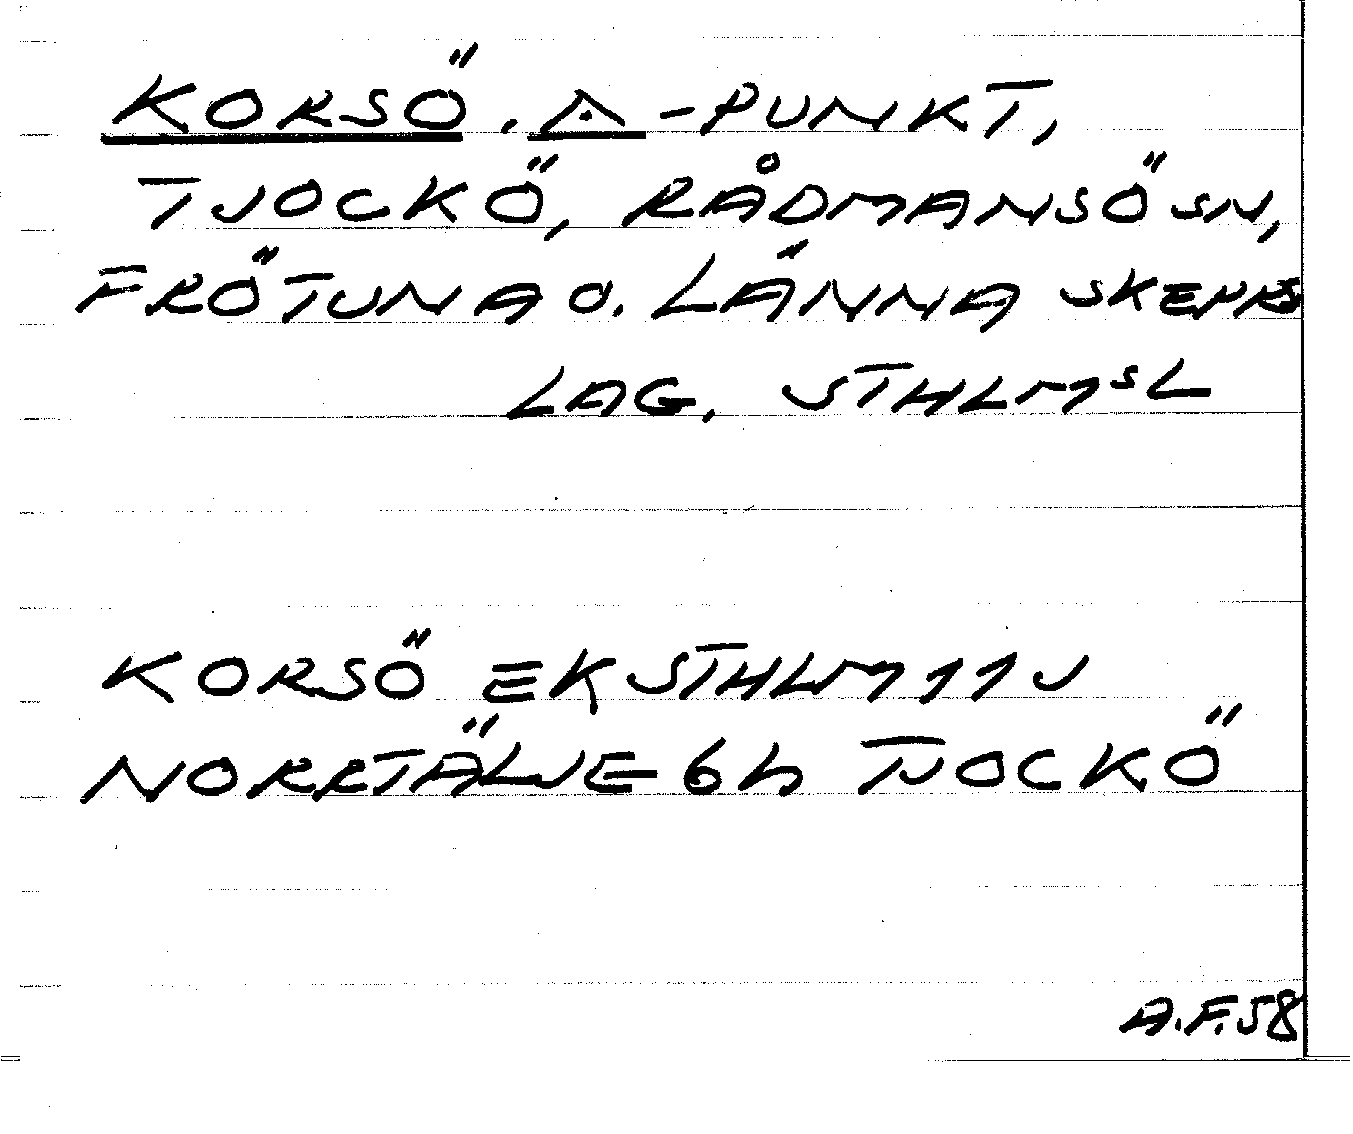 KORSÖ. △-PUNKT,
TJOCKÖ, RÅDMANSÖ SN,
FRÖTUNA O. LÄNNA SKEPPS
LAG, STHLMSL
KORSÖ EK STHLM 11J
NORRTÄLJE 6h TJOCKÖ
A.F.58